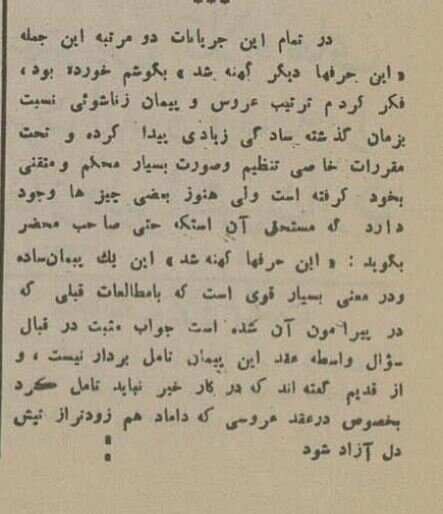 ***
در تمام این جریانات دو مرتبه این جمله
«این حرفها دیگر کهنه شد» بگوشم خورده بود،
فکر کردم ترتیب عروس و پیمان زناشوئی نسبت
بزمان گذشته سادگی زیادی پیدا کرده و تحت
مقررات خاصی تنظیم وصورت بسیار محکم ومتقنی
بخود گرفته است ولی هنوز بعضی چیز ها وجود
دارد که مستحق آن استکه حتی صاحب محضر
بگوید : «این حرفها کهنه شد» این یك پیمان‌ساده
ودر معنی بسیار قوی است که بامطالعات قبلی که
در پیرامون آن شده است جواب مثبت در قبال
سؤال واسطه عقد این پیمان تامل بردار نیست ، و
از قدیم گفته اند که در کار خیر نباید تامل کرد
بخصوص درعقد عروسی که داماد هم زودتراز تپش
دل آزاد شود